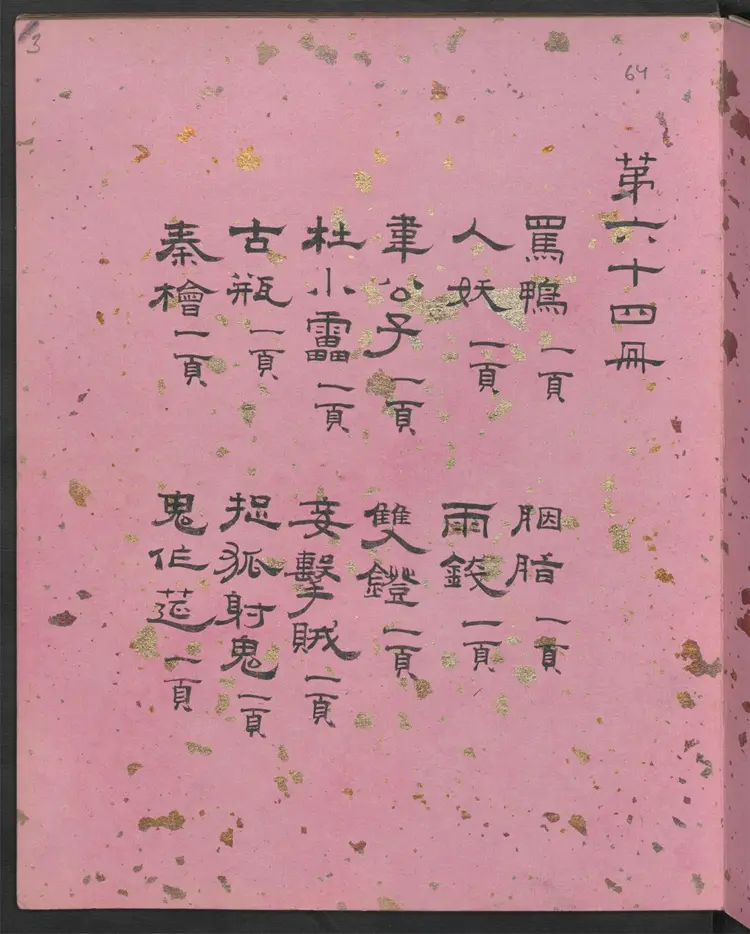 3
64
第六十四冊
罵鴨 一頁
胭脂 一頁
人妖 一頁
雨錢 一頁
韋公子 一頁
雙鐙 一頁
杜小靁 一頁
妾擊賊 一頁
古瓶 一頁
捉狐射鬼 一頁
秦檜 一頁
鬼作莚 一頁